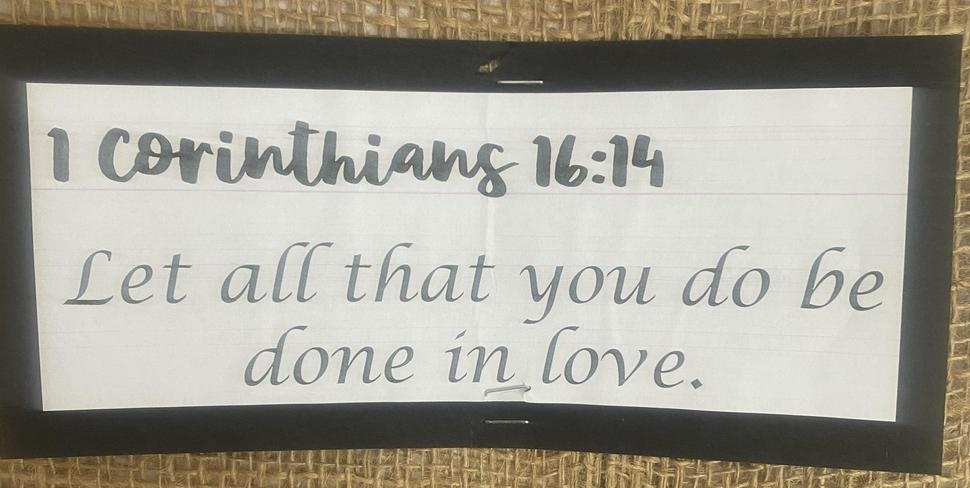 1 Corinthians 16:14
Let all that you do be
done in love.